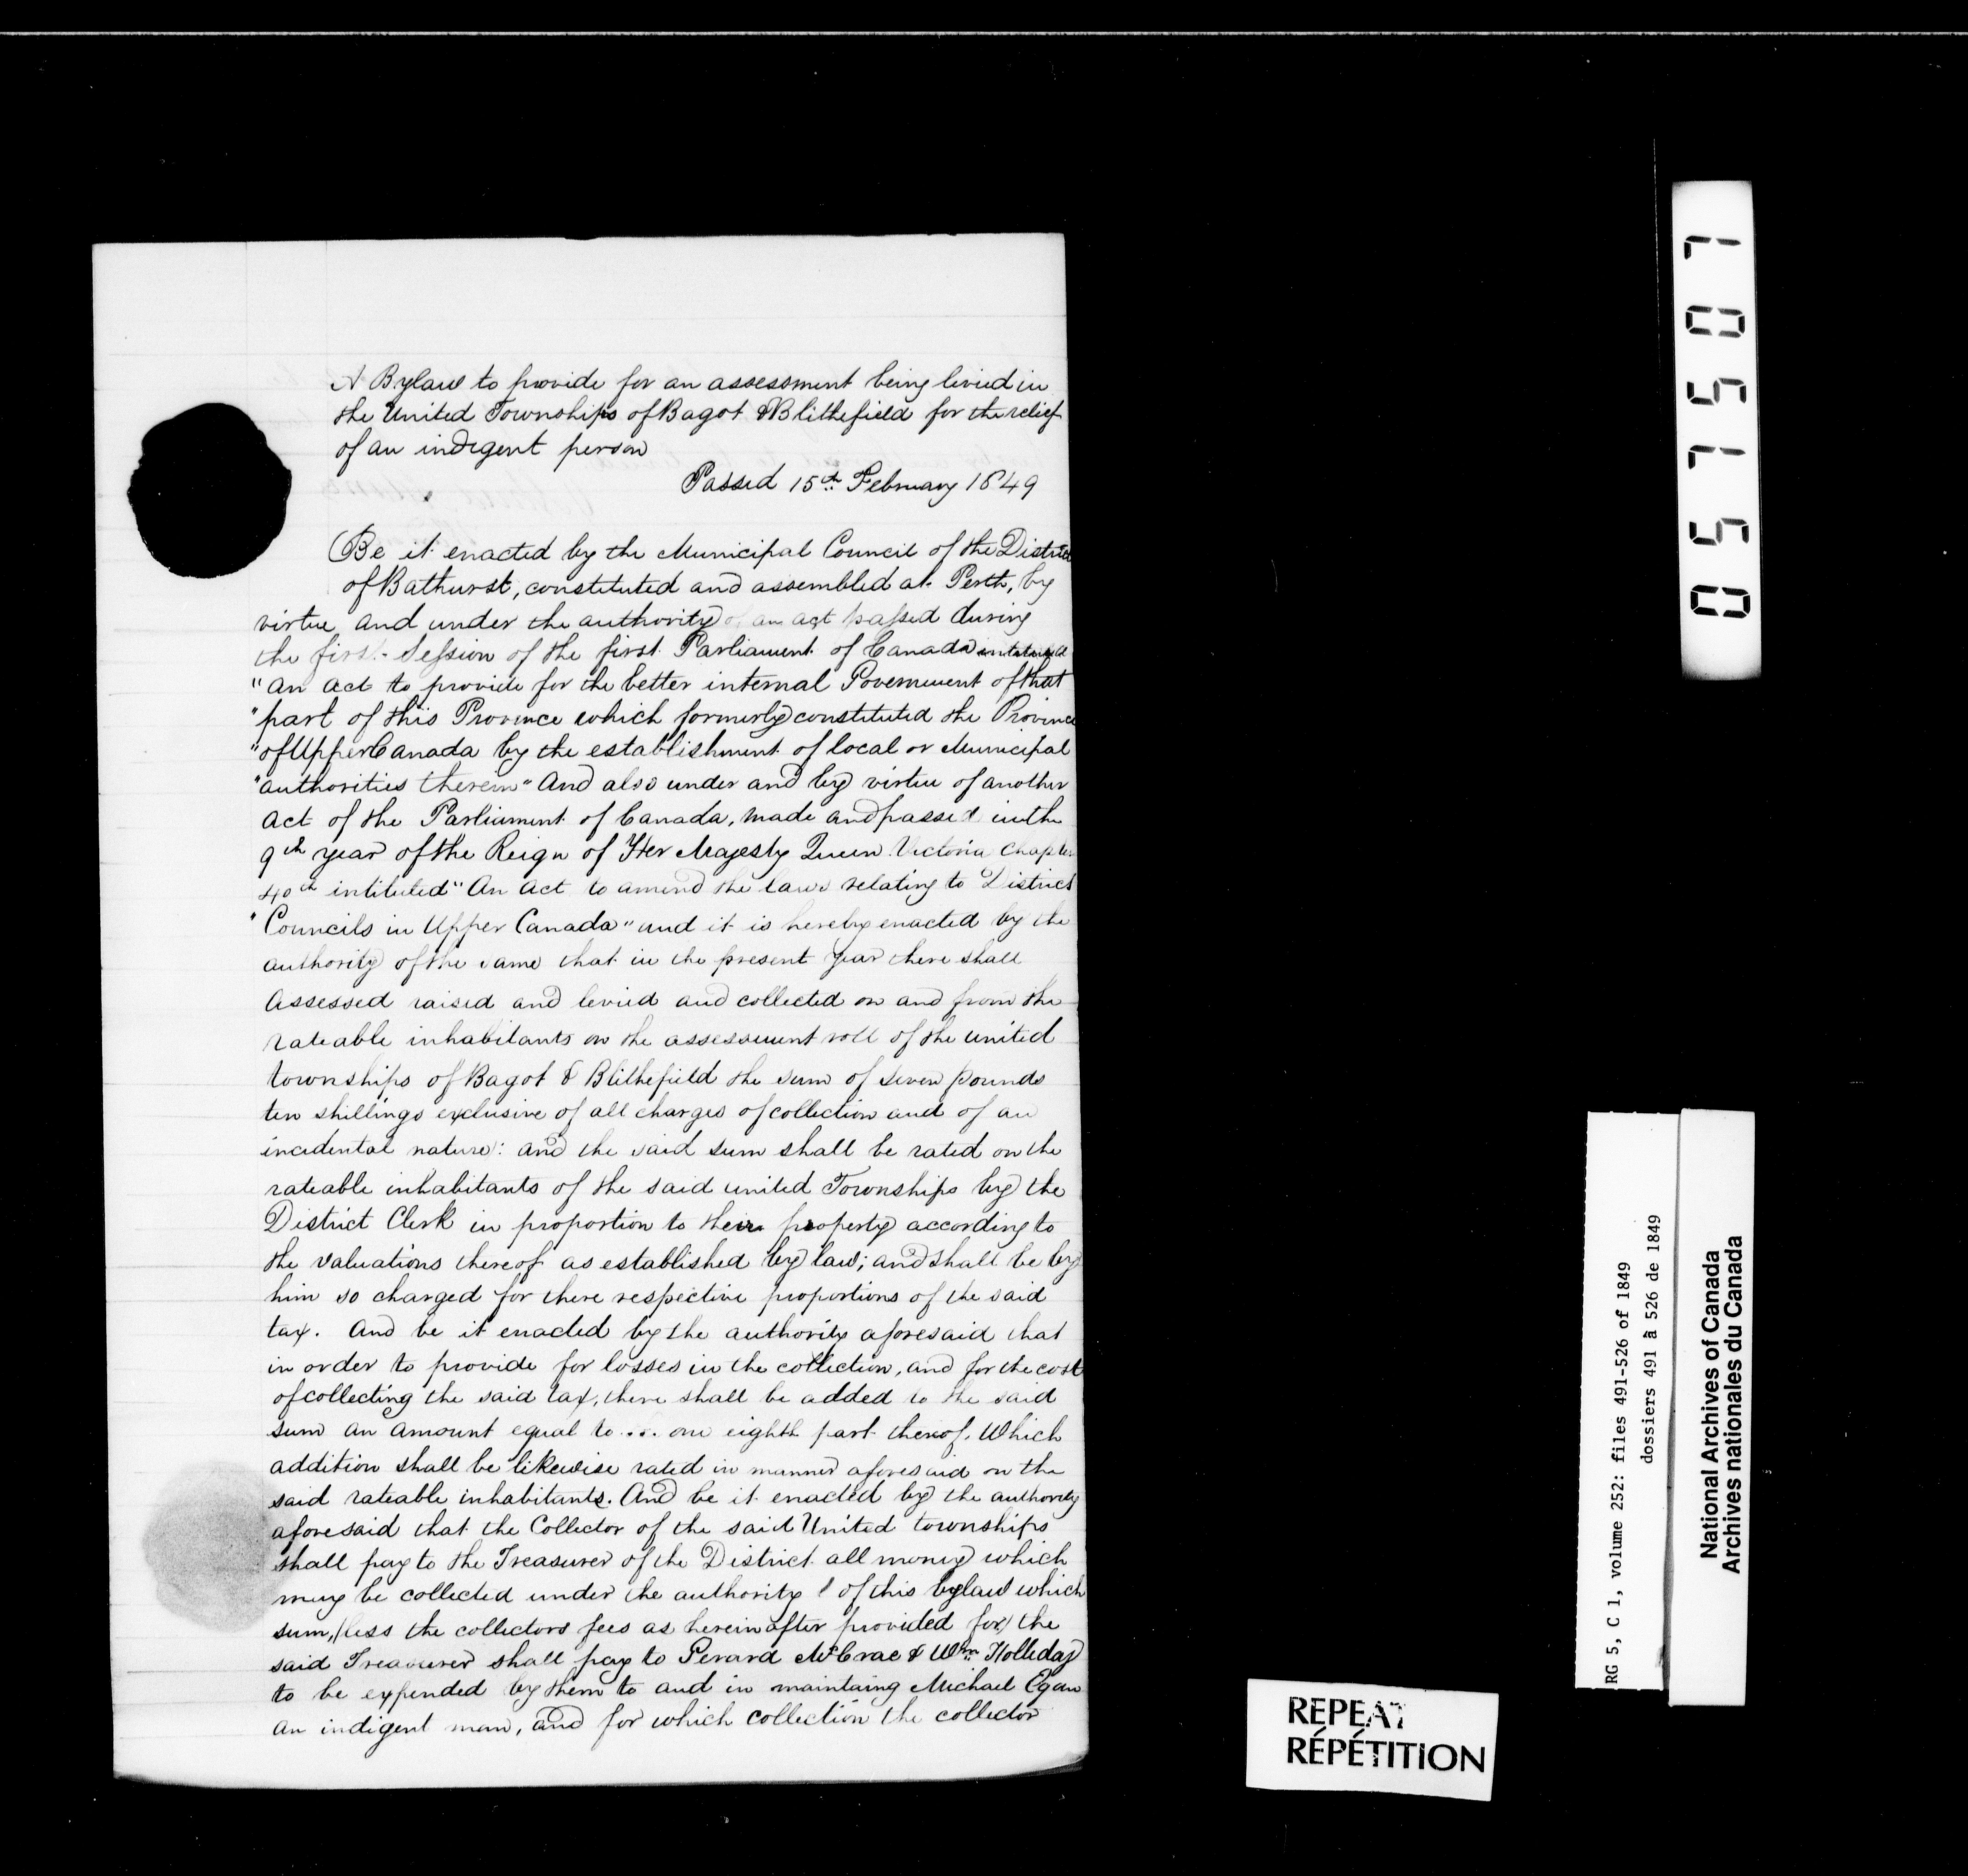 A Bylaw to provide for an assessment being levied in
the United Townships of Bagot & Blithefield for the relief
of an indigent person
Passed 15th February 1849
Be it enacted by the Municipal Council of the District
of Bathurst, constituted and assembled at Perth, by
virtue and under the authority of an act passed during
the first Session of the first Parliament of Canada
"An Act to provide for the better internal Government of that
"part of this Province which formerly constituted the Province
"of Upper Canada by the establishment of local or Municipal
"authorities therein" And also under and by virtue of another
Act of the Parliament of Canada, made and passed in the
9th year of the Reign of Her Majesty Queen Victoria Chapter
40th intituled "An Act to amend the laws relating to District
"Councils in Upper Canada" and it is hereby enacted by the
authority of the same that in the present year there shall
Assessed raised and levied and collected on and from the
rateable inhabitants on the assessment roll of the united
townships of Bagot & Blithefield the sum of seven pounds
ten shillings exclusive of all charges of collection and of an
incidental nature: and the said sum shall be rated on the
rateable inhabitants of the said united Townships by the
District Clerk in proportion to their property according to
the valuations thereof as established by law; and shall be by
him so charged for there respective proportions of the said
tax. And be it enacted by the authority aforesaid that
in order to provide for losses in the collection, and for the cost
of collecting the said tax, there shall be added to the said
sum an amount equal to ... one eighth part thereof. Which
addition shall be likewise rated in manner aforesaid on the
said rateable inhabitants. And be it enacted by the authority
aforesaid that the Collector of the said United townships
shall pay to the Treasurer of the District all money which
may be collected under the authority of this bylaw which
sum, (less the collectors fees as herein after provided for) the
said Treasurer shall pay to Gerard McCrae & Wm Holliday
to be expended by them to and in maintaing Michael Egan
an indigent man, and for which collection the collector
057507
RG 5, C 1, volume 252: files 491-526 of 1849
dossiers 491 à 526 de 1849
National Archives of Canada
Archives nationales du Canada
REPEAT
RÉPÉTITION